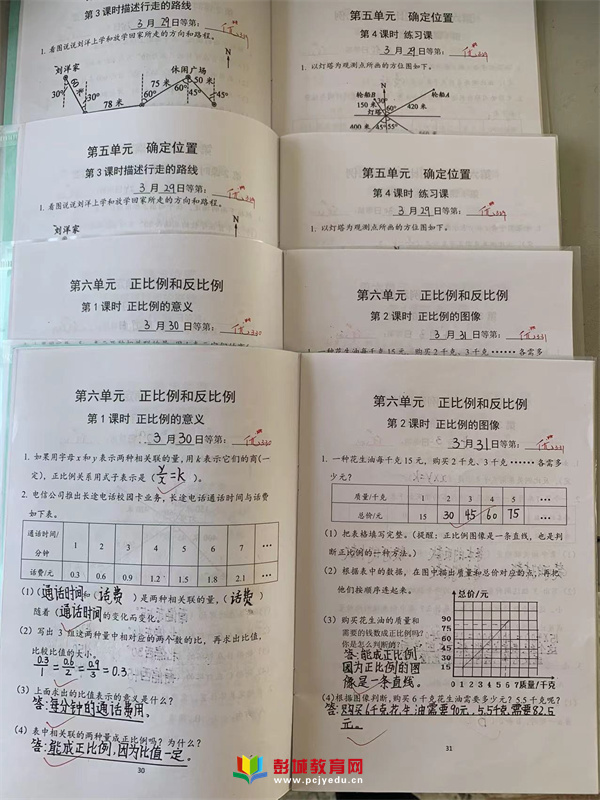 第3课时描述行走的路线
3月29日等第：优
1. 看图说说刘洋上学和放学回家所走的方向和路程。
N
刘洋家
休闲广场
30°
30°
78米
75米
60°
60°
50米
45°
45°
第五单元 确定位置
第4课时 练习课
3月29日等第：优
1. 以灯塔为观测点所画的方位图如下。
轮船B
北
轮船A
150米
30°
60°
420米
灯塔
400米
45°
55°
第五单元 确定位置
第3课时描述行走的路线
3月29日等第：优
1. 看图说说刘洋上学和放学回家所走的方向和路程。
N
刘洋家
第五单元 确定位置
第4课时 练习课
3月29日等第：优
1. 以灯塔为观测点所画的方位图如下。
第六单元 正比例和反比例
第1课时 正比例的意义
3月30日等第：优
第六单元 正比例和反比例
第2课时 正比例的图像
3月31日等第：优
1. 一种花生油每千克15元，购买2千克、3千克……各需多
第六单元 正比例和反比例
第1课时 正比例的意义
3月30日等第：优
1. 如果用字母x和y表示两种相关联的量，用k表示它们的商(一
定)，正比例关系用式子表示是（y/x=k）。
2. 电信公司推出长途电话校园卡业务，长途电话通话时间与话费
如下表。
通话时间/分钟 1 2 3 4 5 6 7 …
话费/元 0.3 0.6 0.9 1.2 1.5 1.8 2.1 …
(1)(通话时间)和(话费)是两种相关联的量，(话费)
随着(通话时间)的变化而变化。
(2) 写出3组这两种量中相对应的两个数的比，再求出比值，
比较比值的大小。
0.3/1=0.6/2=0.9/3=0.3
(3) 上面求出的比值表示的意义是什么？
答：每分钟的通话费用。
(4) 表中相关联的两种量成正比例吗？为什么？
答：能成正比例，因为比值一定。
30
第六单元 正比例和反比例
第2课时 正比例的图像
3月31日等第：优
1. 一种花生油每千克15元，购买2千克、3千克……各需多
少元？
质量/千克 1 2 3 4 5 …
总价/元 15 30 45 60 75 …
(1) 把表格填写完整。(提醒：正比例图像是一条直线，也是判
断正比例的一种方法。)
(2) 根据表中的数据，在图中描出质量和总价对应的点，再把
他们按顺序连起来。
总价/元
90
75
60
45
30
15
0 1 2 3 4 5 6 7 质量/千克
(3) 购买花生油的质量和
需要的钱数成正比例吗？
你是怎么判断的？
答：能成正比例，
因为正比例的图
像是一条直线。
(4)根据图像判断，购买6千克花生油需要多少元？5.5千克呢？
答：购买6千克花生油需要90元，5.5千克需要82.5
元。
31
彭城教育网
www.pcjyedu.cn